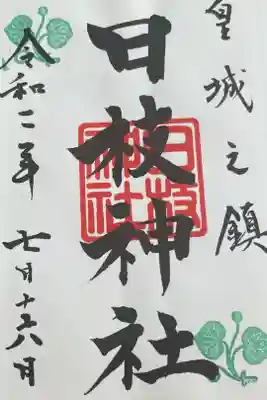 皇城之鎮
日枝神社
日枝神社
令和二年 七月十六日